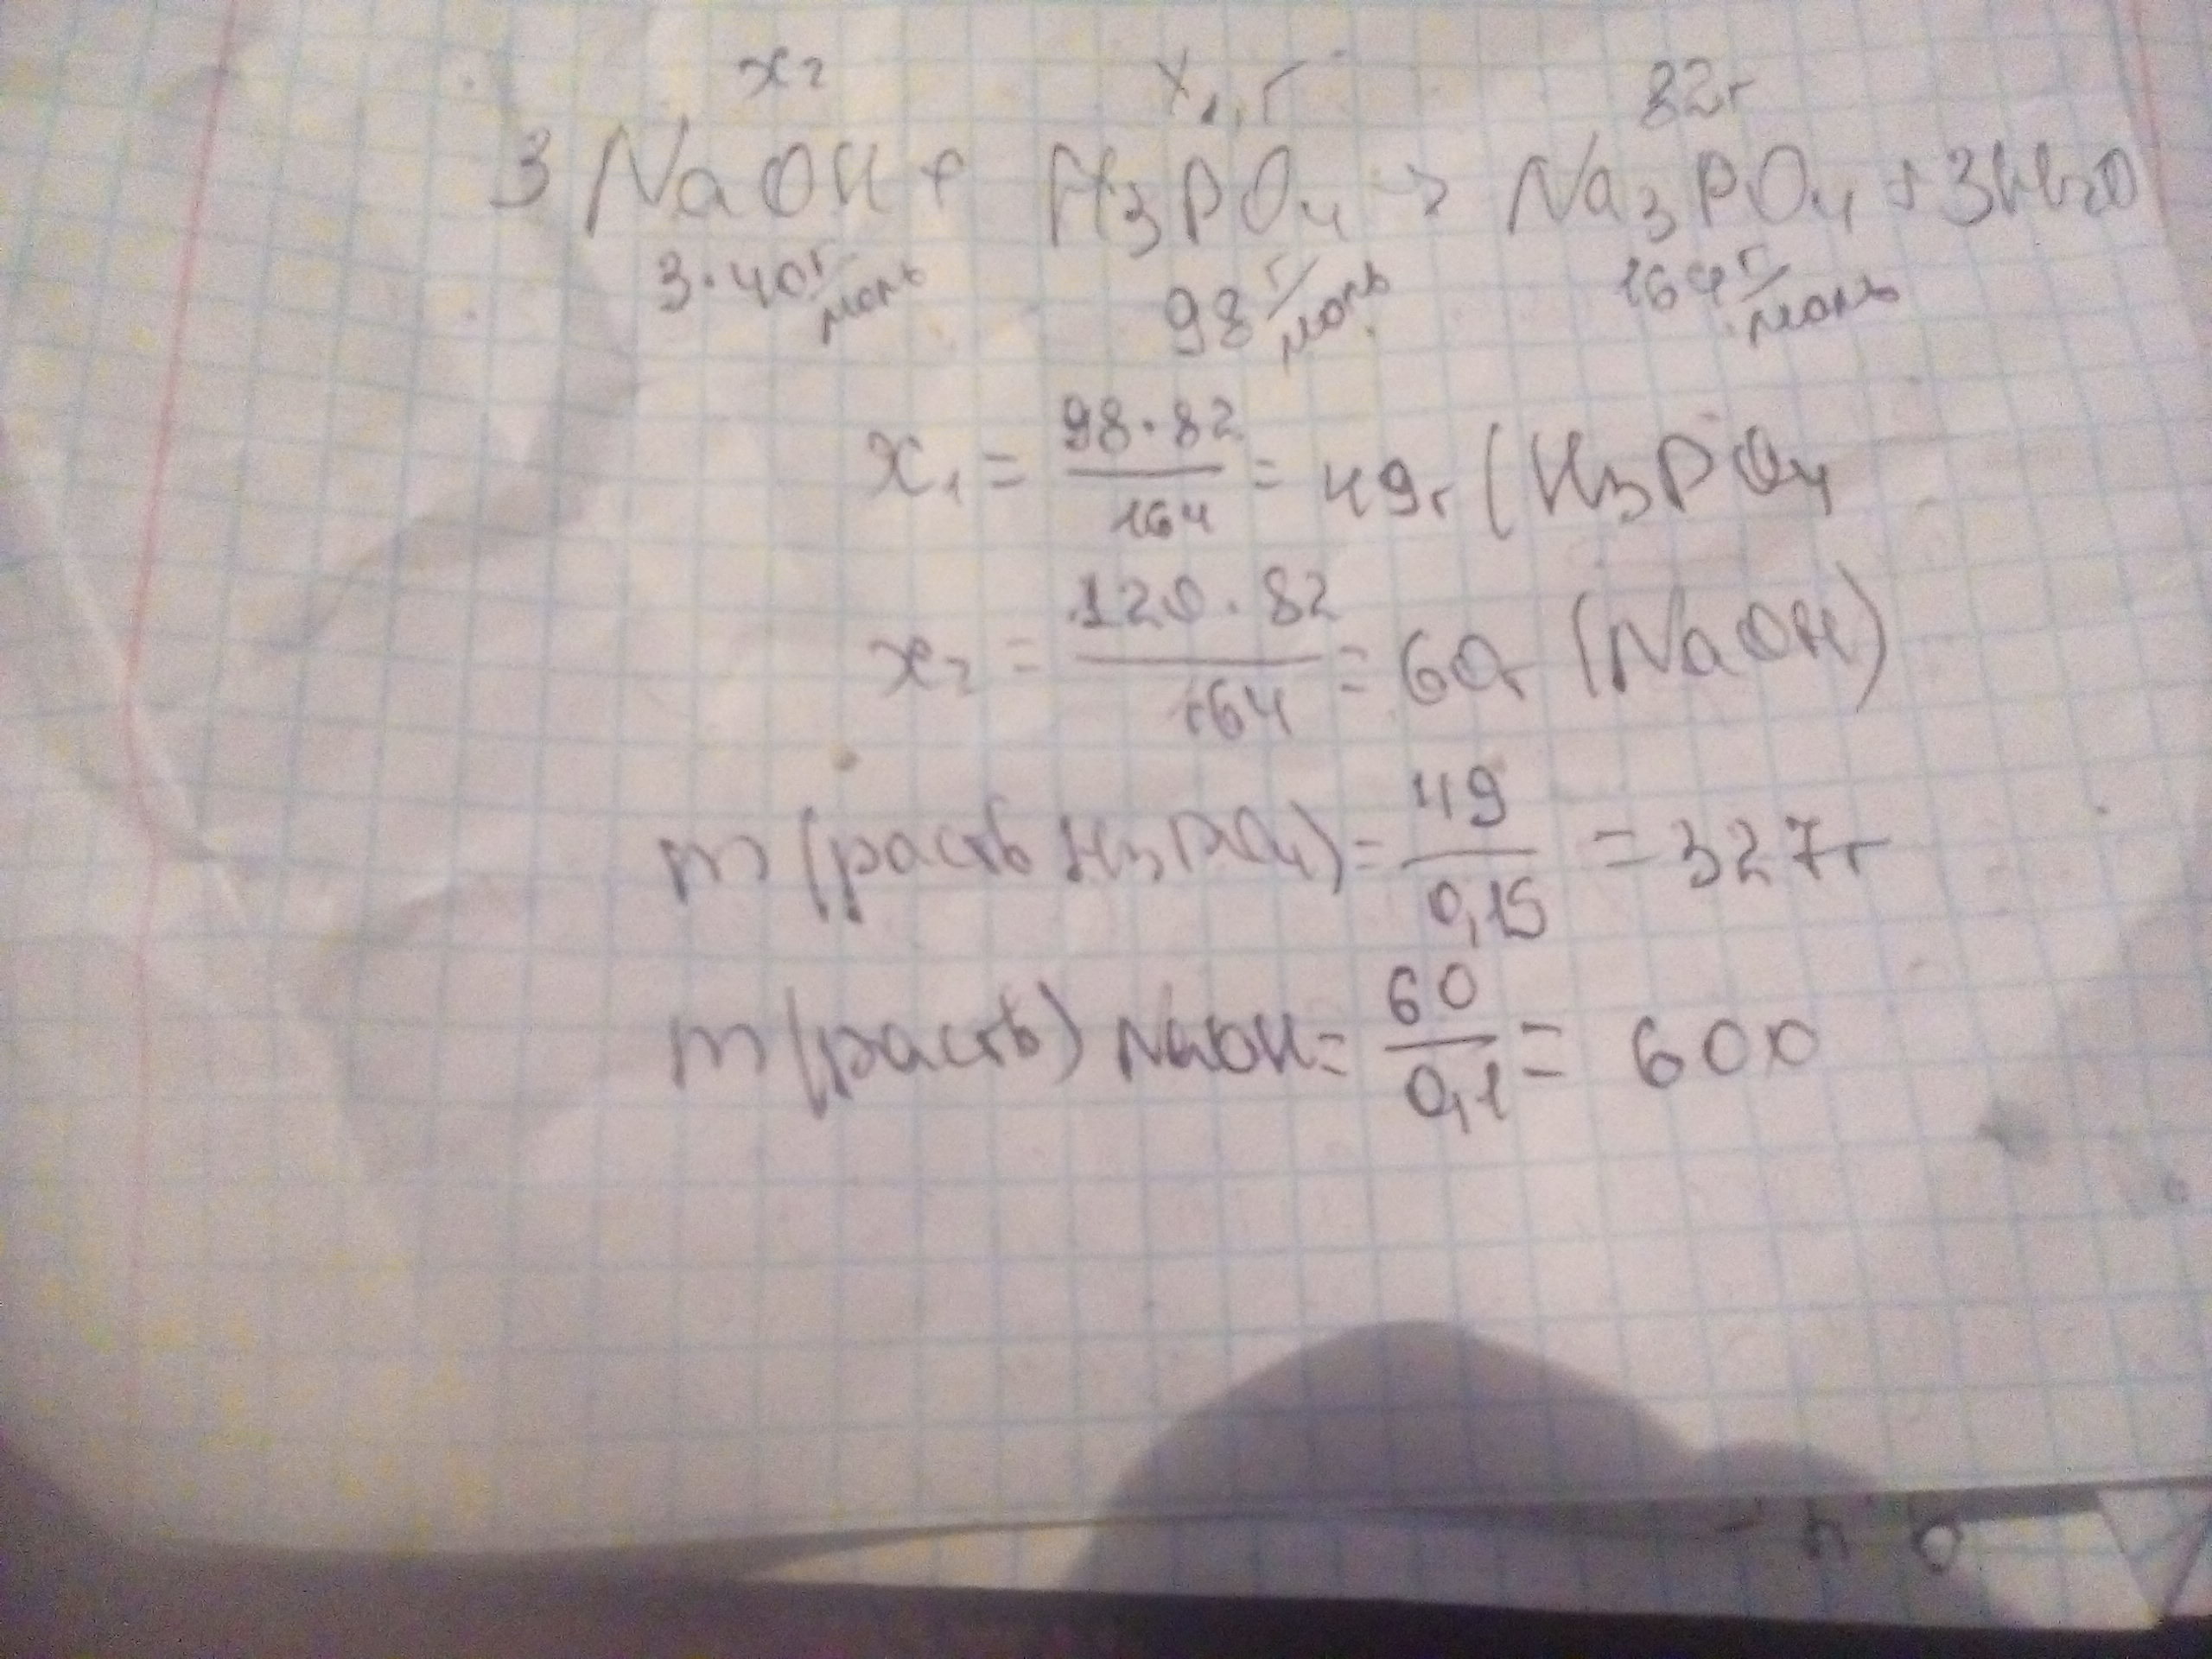 x₂ x₁, г 82г
3 NaOH + H₃PO₄ → Na₃PO₄ + 3H₂O
3·40 г/моль 98 г/моль 164 г/моль
x₁ = 98·82/164 = 49г (H₃PO₄
x₂ = 120·82/164 = 60г (NaOH)
m (раств H₃PO₄) = 49/0,15 = 327г
m (раств) NaOH = 60/0,1 = 600